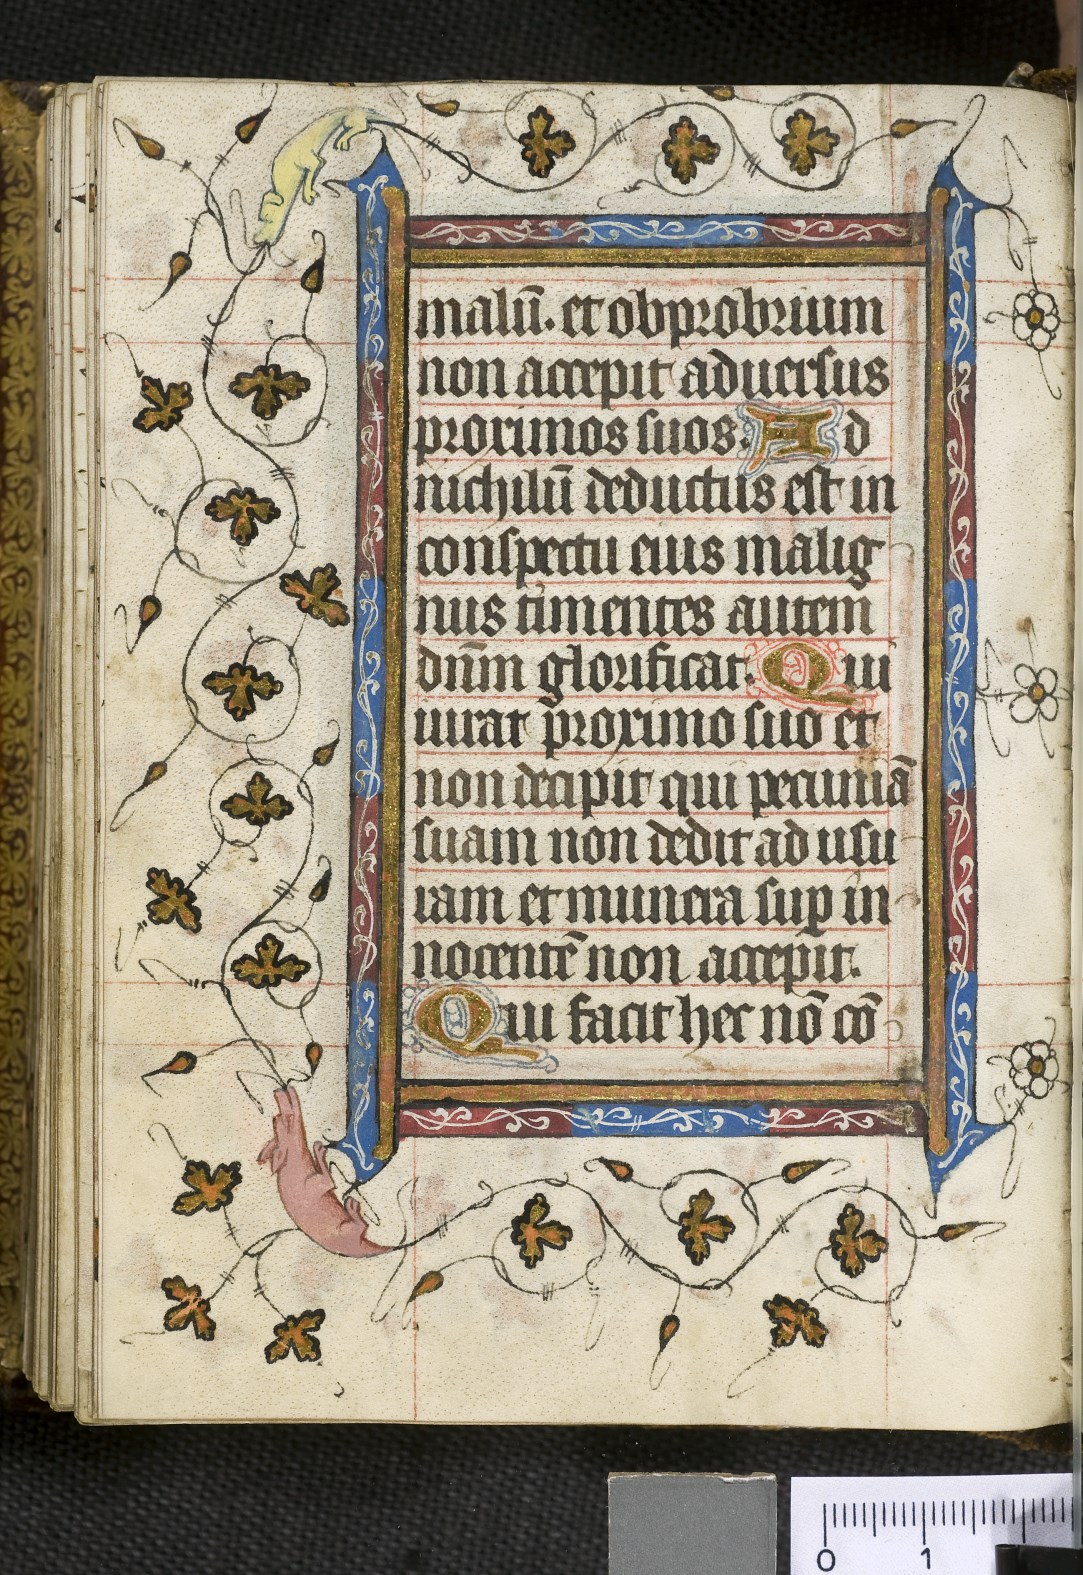 malū. et obprobrium
non accepit aduersus
proximos suos. Ad
nichilū deductus est in
conspectu eius malig
nus timentes autem
dn̄m glorificat. Qui
iurat proximo suo et
non decipit qui pecuniā
suam non dedit ad usu
ram et munera suꝑ in
nocentē non accepit.
Qui facit hec nō cō
0 1